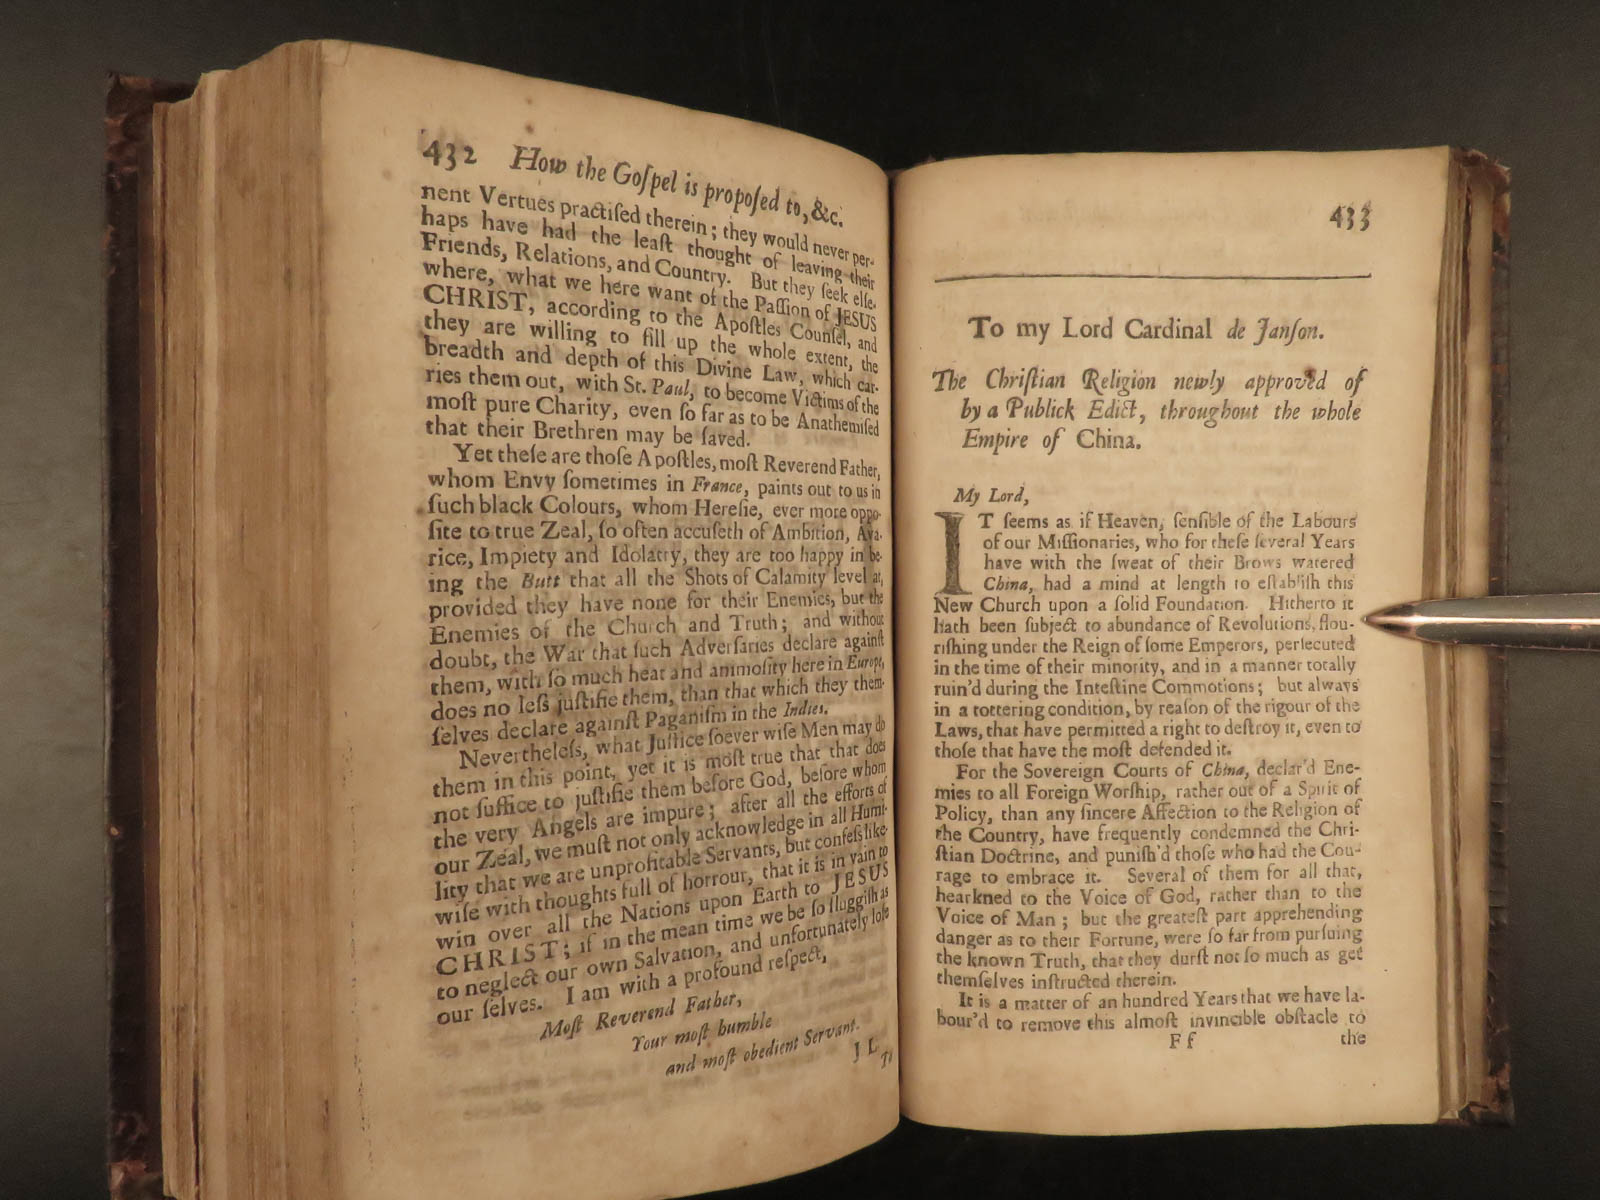 432 How the Goſpel is propoſed to, &c.
nent Vertues practiſed therein; they would never per-
haps have had the leaſt thought of leaving their
Friends, Relations, and Country. But they ſeek elſe-
where, what we here want of the Paſſion of JESUS
CHRIST, according to the Apoſtles Counſel, and
they are willing to fill up the whole extent, the
breadth and depth of this Divine Law, which car-
ries them out, with St. Paul, to become Victims of the
moſt pure Charity, even ſo far as to be Anathemiſed
that their Brethren may be ſaved.
Yet theſe are thoſe Apoſtles, moſt Reverend Father,
whom Envy ſometimes in France, paints out to us in
ſuch black Colours, whom Hereſie, ever more oppo-
ſite to true Zeal, ſo often accuſeth of Ambition, Ava-
rice, Impiety and Idolatry, they are too happy in be-
ing the Butt that all the Shots of Calamity level at,
provided they have none for their Enemies, but the
Enemies of the Church and Truth; and without
doubt, the War that ſuch Adverſaries declare againſt
them, with ſo much heat and animoſity here in Europe,
does no leſs juſtifie them, than that which they them-
ſelves declare againſt Paganiſm in the Indies.
Nevertheleſs, what Juſtice ſoever wiſe Men may do
them in this point, yet it is moſt true that that does
not ſuffice to juſtifie them before God, before whom
the very Angels are impure; after all the efforts of
our Zeal, we muſt not only acknowledge in all Humi-
lity that we are unprofitable Servants, but confeſs like-
wiſe with thoughts full of horrour, that it is in vain to
win over all the Nations upon Earth to JESUS
CHRIST; if in the mean time we be ſo ſluggiſh as
to neglect our own Salvation, and unfortunately loſe
our ſelves. I am with a profound reſpect,
Moſt Reverend Father,
Your moſt humble
and moſt obedient Servant.
J L.
433
To my Lord Cardinal de Janſon.
The Chriſtian Religion newly approved of
by a Publick Edict, throughout the whole
Empire of China.
My Lord,
IT ſeems as if Heaven, ſenſible of the Labours
of our Miſſionaries, who for theſe ſeveral Years
have with the ſweat of their Brows watered
China, had a mind at length to eſtabliſh this
New Church upon a ſolid Foundation. Hitherto it
hath been ſubject to abundance of Revolutions, flou-
riſhing under the Reign of ſome Emperors, perſecuted
in the time of their minority, and in a manner totally
ruin'd during the Inteſtine Commotions; but always
in a tottering condition, by reaſon of the rigour of the
Laws, that have permitted a right to deſtroy it, even to
thoſe that have the moſt defended it.
For the Sovereign Courts of China, declar'd Ene-
mies to all Foreign Worſhip, rather out of a Spirit of
Policy, than any ſincere Affection to the Religion of
the Country, have frequently condemned the Chri-
ſtian Doctrine, and puniſh'd thoſe who had the Cou-
rage to embrace it. Several of them for all that,
hearkned to the Voice of God, rather than to the
Voice of Man; but the greateſt part apprehending
danger as to their Fortune, were ſo far from purſuing
the known Truth, that they durſt not ſo much as get
themſelves inſtructed therein.
It is a matter of an hundred Years that we have la-
bour'd to remove this almoſt invincible obſtacle to
F f the